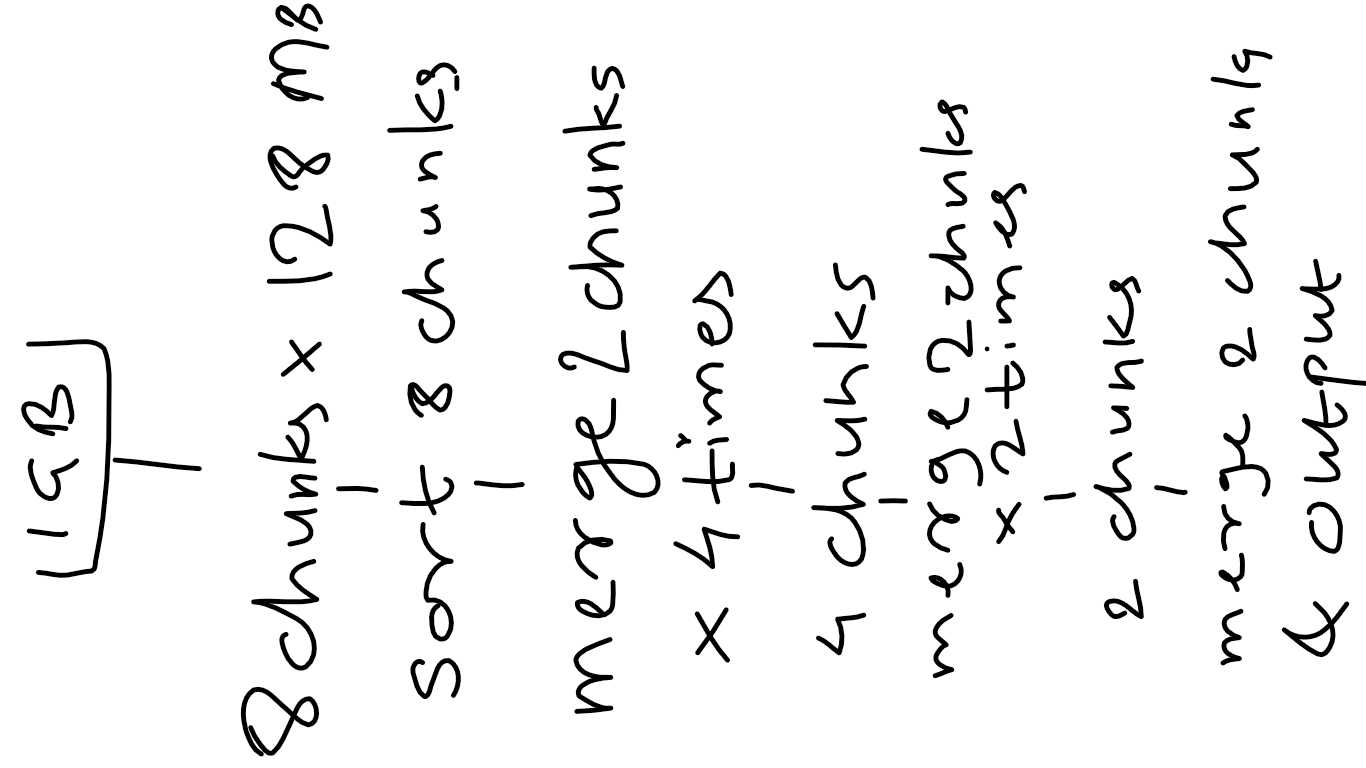 1GB
8 chunks x 128 MB
sort 8 chunks
merge 2 chunks
x 4 times
4 chunks
merge 2 chnks
x 2 times
2 chunks
merge 2 chunks
& output